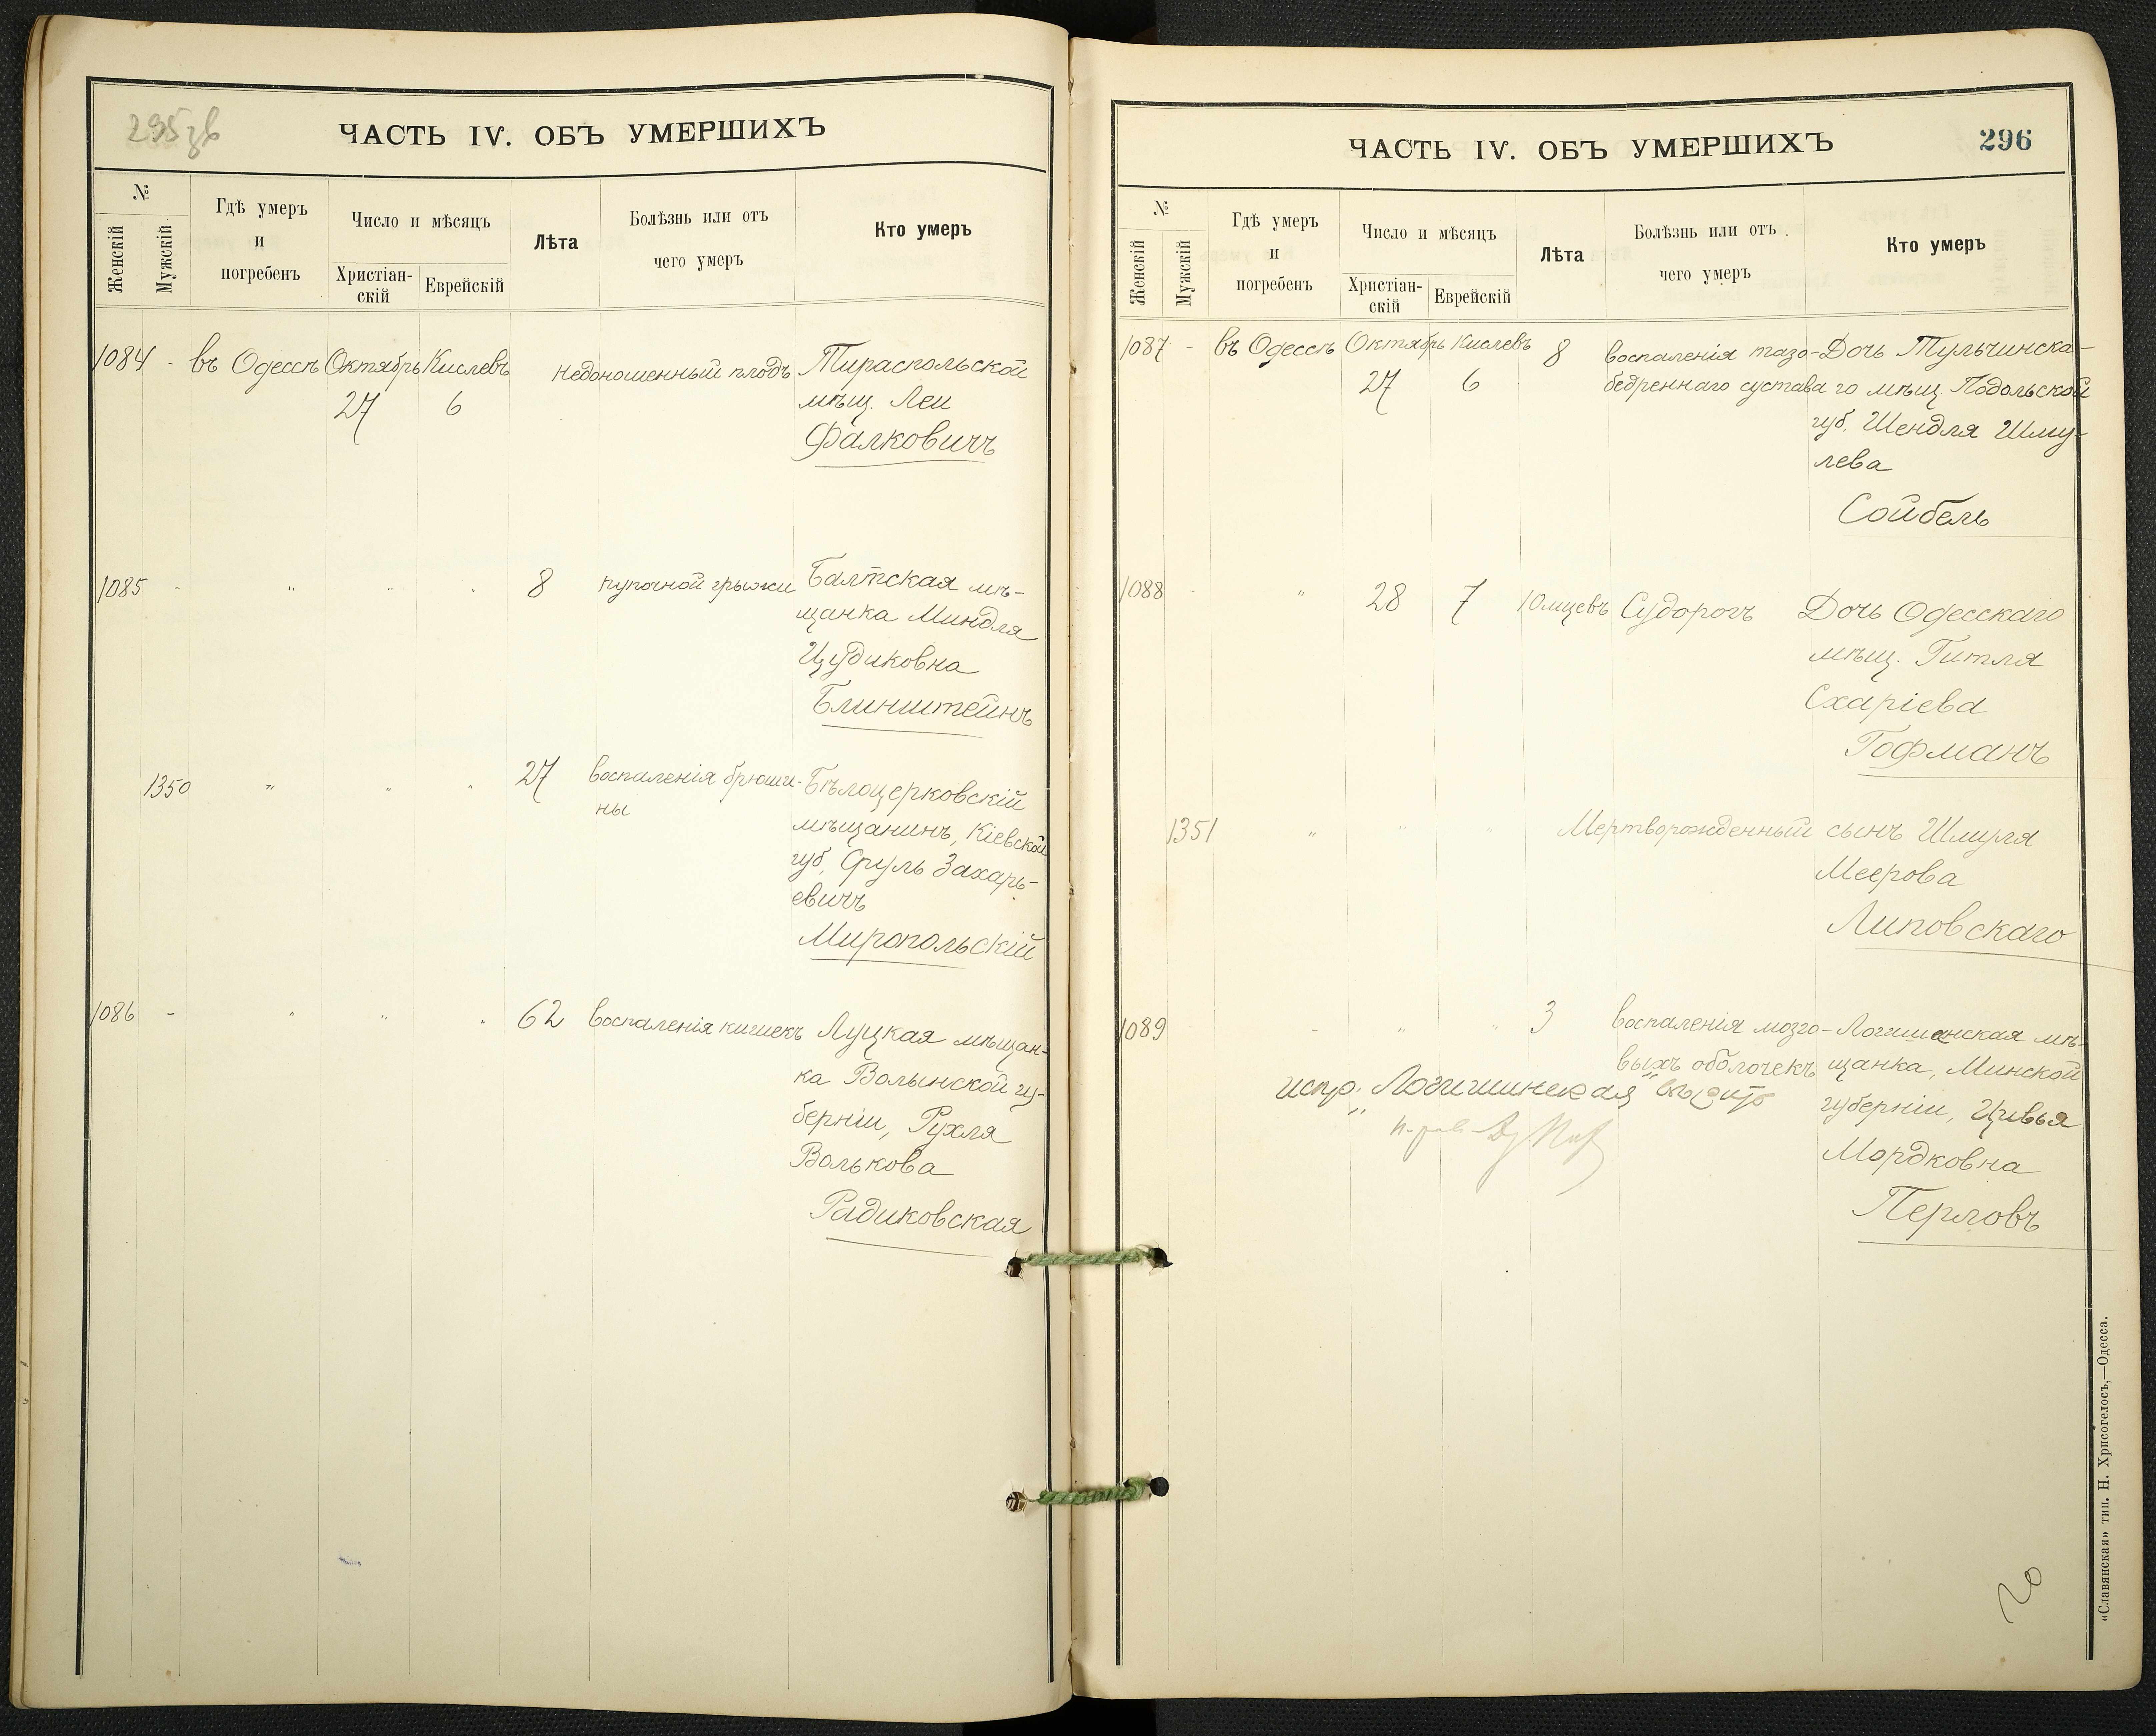 295зв
ЧАСТЬ IV. ОБЪ УМЕРШИХЪ
№
Женскій
Мужскій
Гдѣ умеръ
и
погребенъ
Число и мѣсяцъ
Христіан-
скій
Еврейскій
Лѣта
Болѣзнь или отъ
чего умеръ
Кто умеръ
1084 - въ Одессѣ Октябрь Кислевъ недоношенный плодъ Тираспольской
27 6 мѣщ. Леи
Фалковичъ
1085 - " " " 8 пупочной грыжи Балтская мѣ-
щанка Миндля
Цудиковна
Блинштейнъ
1350 " " " 27 воспаленія брюши- Бѣлоцерковскій
ны мѣщанинъ, Кіевской
губ, Сруль Захарь-
евичъ
Миропольскій
1086 - " " " 62 воспаленія кишекъ Луцкая мѣщан-
ка Волынской гу-
берніи, Рухля
Волькова
Радиковская
ЧАСТЬ IV. ОБЪ УМЕРШИХЪ
296
№
Женскій
Мужскій
Гдѣ умеръ
и
погребенъ
Число и мѣсяцъ
Христіан-
скій
Еврейскій
Лѣта
Болѣзнь или отъ
чего умеръ
Кто умеръ
1087 - въ Одессѣ Октябрь Кислевъ 8 воспаленія тазо- Дочь Тульчинска-
27 6 бедреннаго сустава го мѣщ. Подольской
губ. Шендля Шму-
лева
Сойбель
1088 - " 28 7 10 мцевъ Судорогъ Дочь Одесскаго
мѣщ. Гитля
Схаріева
Гофманъ
1351 " " " Мертворожденный сынъ Шмуля
Меерова
Липовскаго
1089 - " " 3 воспаленія мозго- Логишанская мѣ-
выхъ оболочекъ щанка, Минской
испр. „Логишинская“ вѣрить
губерніи, Цивья
Мордковна
Перловъ
20
«Славянская» тип. Н. Хрисогелосъ,—Одесса.